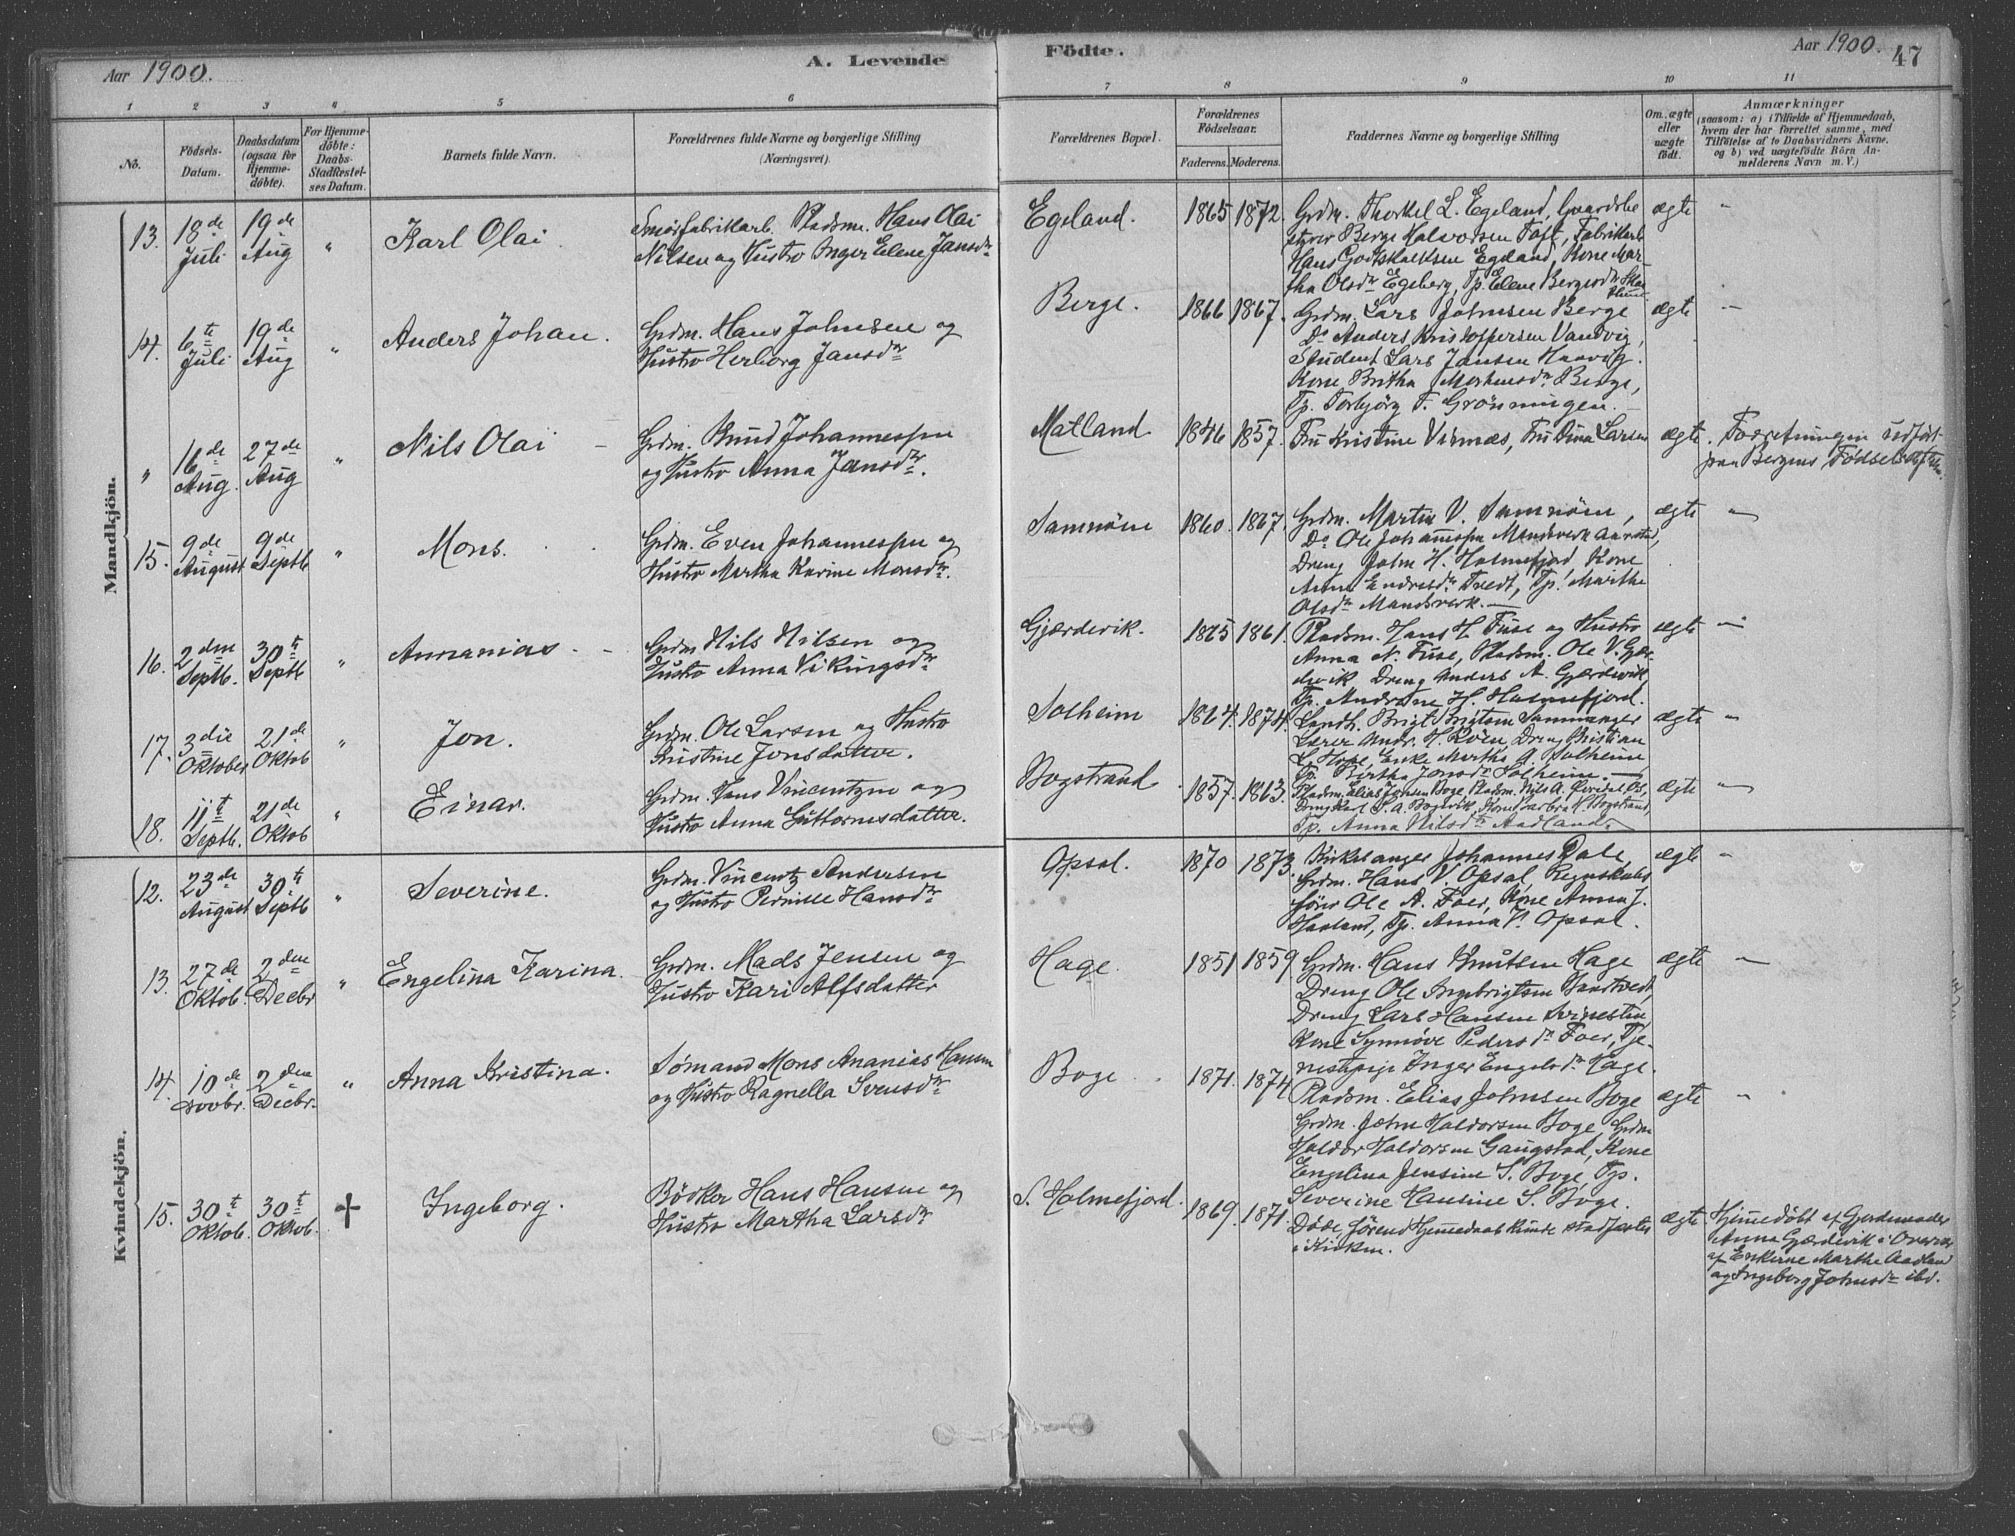 Aar 1900.
A. Levende
Födte.
Aar 1900.
47
1 2 3 4 5 6 7 8 9 10 11
No.
Födsels-
Datum.
Daabsdatum
(ogsaa for
Hjemme-
döbte).
For Hjemme-
döbte:
Daabs-
Stadfæstel-
ses Datum.
Barnets fulde Navn.
Forældrenes fulde Navne og borgerlige Stilling
(Næringsvei).
Forældrenes Bopæl.
Forældrenes
Födselsaar.
Faderens. Moderens.
Faddernes Navne og borgerlige Stilling
Om ægte
eller
uægte
födt.
Anmærkninger
(saasom: a) i Tilfælde af Hjemmedaab,
hvem der har forrettet samme, med
Tilføielse af to Daabsvidners Navne,
og b) ved uægtefödte Börn An-
melderens Navn m. V.)
Mandkjön.
13.
18de
Juli
19de
Aug
"
Karl Olai
Smørfabrikarb. Pladsm. Hans Olai
Nilsen og Hustro Inger Elene Jansdr
Egeland.
1865 1872.
Grdm. Thorkel L. Egeland, Gaardsbe
styrer Berge Halvorsen Toft, Fabrikarb
Hans Godtskalksen Egeland, Kone Mar-
tha Olsdr Egeberg, Pp. Elene Bergesdr
ægte
"
14.
6te
Juli
19de
Aug
"
Anders Johan.
Grdm. Hans Johnsen og
Hustro Herborg Jansdr
Berge.
1866 1867.
Grdm. Lars Johnsen Berge
Do Anders Kristoffersen Vandvig,
Student Lars Jansen Haavig.
Kone Britha Mortensdr Berge,
Pp. Torbjörg T. Grönningen.
ægte
"
"
16de
Aug.
27de
Aug
"
Nils Olai
Grdm. Knud Johannessen
og Hustro Anna Jansdr.
Matland
1846 1857.
Fru Kristine Virnæs, Fru Dina Larsen
ægte.
Forretningen udført
paa Bergens Fødselsstiftelse.
15.
9de
August
9de
Septb
"
Mons.
Grdm. Even Johannessen og
Hustro Martha Karine Monsdr.
Samnöen
1860. 1867.
Grdm. Martin V. Samnöen,
Do Ole Johannessen Mandsverk
Dreng John H. Holmefjord, Kone
Anna Endresdr Tvedt, Pp. Marthe
Olsdr Mandsverk.
ægte
"
16.
2den
Septb.
30te
Septb
"
Annanias
Grdm Nils Nilsen og
Hustro Anna Vikingsdr
Gjærdevik.
1865 1861.
Pladsm. Hans H. Fuse og Hustro
Anna N. Fuse, Pladsm. Ole V. Gjær-
devik Dreng Anders A. Gjærdevik
Pp. Andrine H. Holmefjord.
ægte
"
17.
3die
Oktober
21de
Oktob
"
Jon.
Grdm. Ole Larsen og Hustro
Kristine Jonsdatter.
Solheim
1864. 1874.
Landh. Brigt Brigtsen Sammanger
Lærer Andr. H. Röen, Dreng Kristian
L. Hope, Enke Martha A. Solheim
Pp. Birtha Jonsdr Solheim.
ægte
"
18.
11te
Septb.
21de
Oktob
"
Einar.
Grdm. Hans Vincentzen og
Hustro Anna Guttormsdatter.
Bogstrand
1857. 1863.
Pladsm. Elias Jensen Boge Pladsm. Nils A.
Pp. Anna Nilsdr Aadland.
ægte
"
Kvindekjön.
12.
23de
August
30te
Septb
"
Severine.
Grdm. Vincentz Andersen
og Hustro Pernille Hansdr
Opsal.
1870 1873.
Kirkesanger Johannes Dale,
Grdm. Hans V. Opsal Regnskabs
förer Ole A. Foer, Kone Anna J.
Haaland, Pp. Anna V. Opsal.
ægte
"
13.
27de
Oktob.
2den
Decbr
"
Engelina Karina.
Grdm. Mads Jensen og
Hustro Kari Alfsdatter
Hage.
1851. 1859
Grdm. Hans Knutsen Hage
Dreng Ole Ingebrigtsen
Dreng Lars Hansen
Kone Synnöve Pedersdr Foer, Tje-
nestepige Inger Engelsdr Hage.
ægte
"
14.
10de
Novbr.
2den
Decbr.
"
Anna Kristina.
Sömand Mons Ananias Hansen
og Hustro Ragnella Svensdr
Boge
1871. 1874
Pladsm. Elias Johnsen Boge
Grdm. John Haldorsen Boge, Grdm
Haldor Haldorsen Gaugstad, Kone
Engelina Jensine S. Boge, Pp.
Severine Hansine S. Boge.
ægte
"
15.
30te
Oktob.
30te
Oktob.
+
Ingeborg.
Bödker Hans Hansen og
Hustro Martha Larsdr
S. Holmefjord.
1869. 1871.
Döde, förend Hjemmedaab kunde stadfæstes
i Kirken.
ægte
Hjemmedöbt af Gjordemoder
Anna Gjærdevik i Overvær
af Enkerne Marthe Aadland
og Ingeborg Johnsdr ibd.